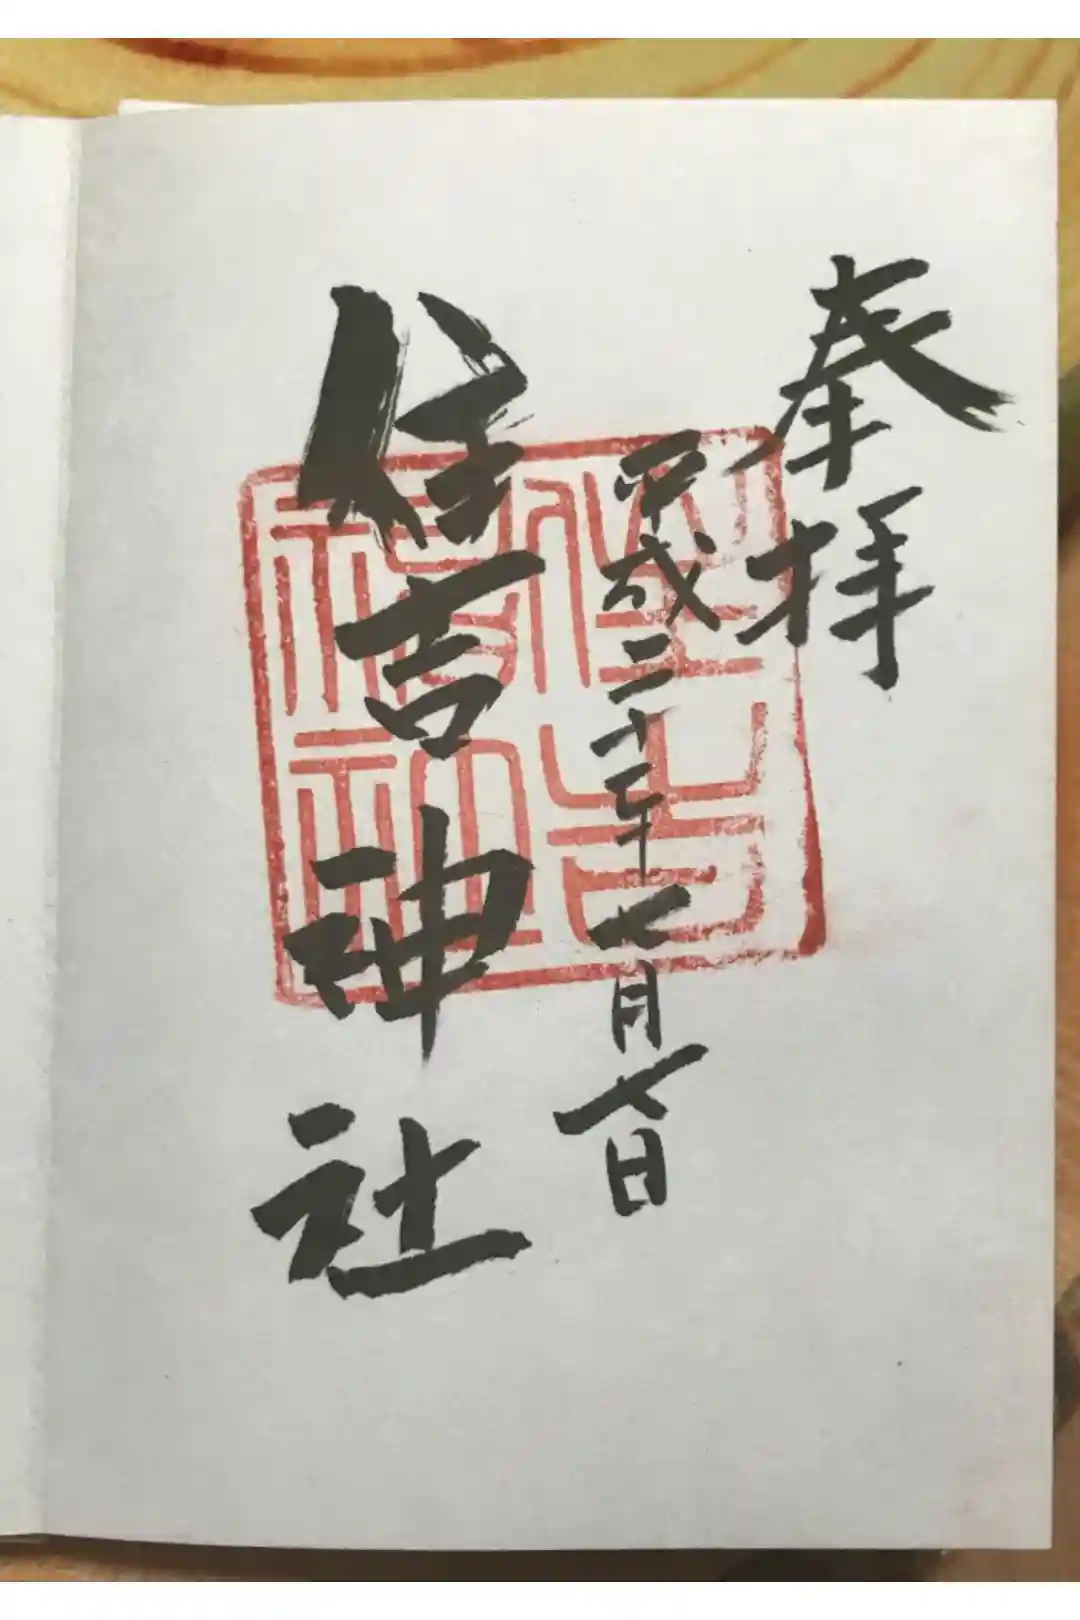 奉拝
平成二十七年七月七日
住吉神社
住吉